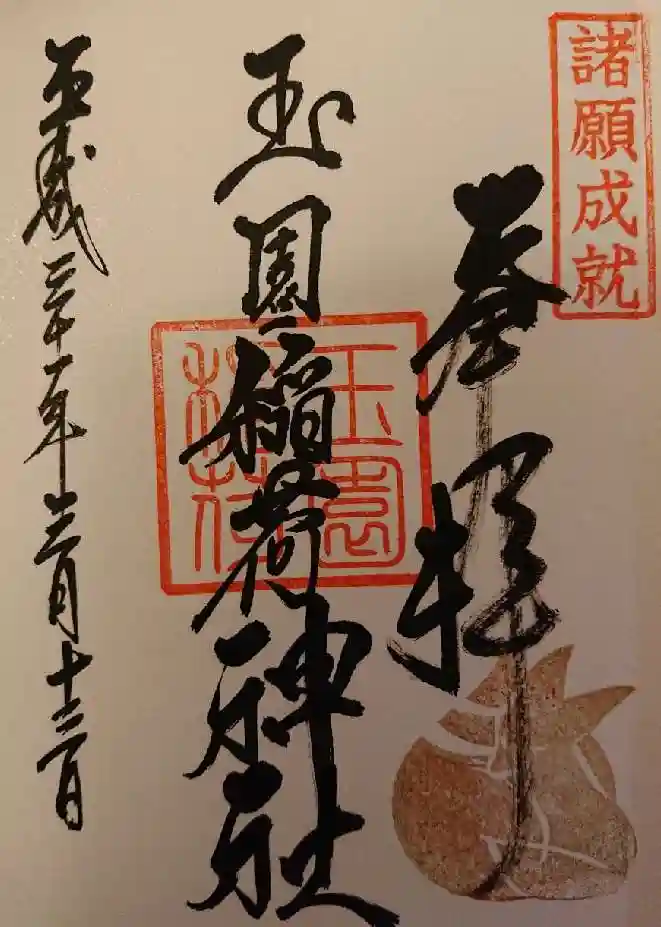 諸願成就
奉拝
玉園稲荷神社
玉園
稲荷
平成三十一年三月十三日